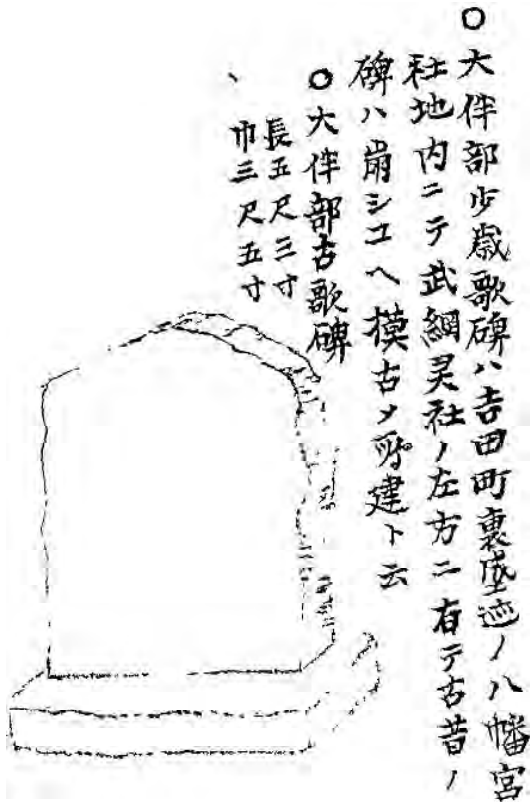 ○大伴部少歳歌碑ハ吉田町裏塁迹ノ八幡宮
社地内ニテ武綱灵社ノ左方ニ有テ古昔ノ
碑ハ崩シユヘ摸古メ所建ト云
○大伴部古歌碑
長五尺三寸
巾三尺五寸